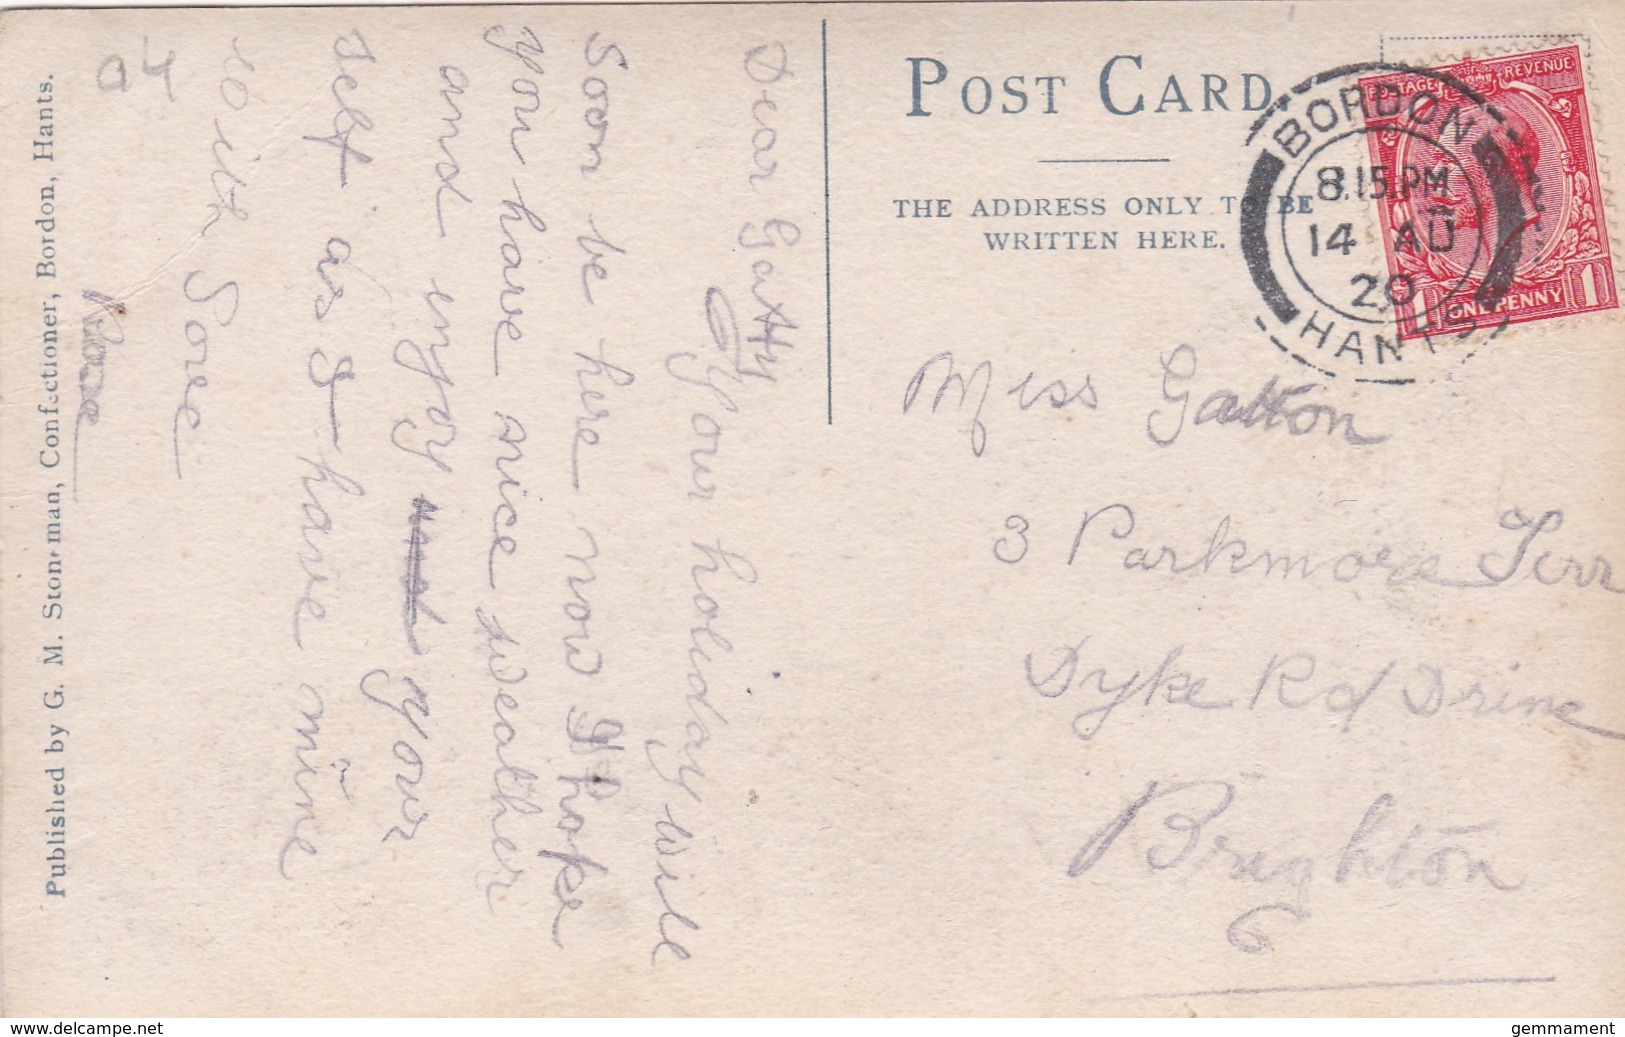 Published by G. M. Stoneman, Confectioner, Bordon, Hants.
04
Dear Gatty
Your holiday will
Soon be here now I hope
you have nice weather
and injoy your
self as I have mine
with Love
Rose
POST CARD
THE ADDRESS ONLY TO BE
WRITTEN HERE.
BORDON
8.15.PM
14 AU
20
HANTS
POSTAGE REVENUE
1 ONE PENNY 1
Miss Gatton
3 Parkmore Terr
Dyke Rd Drive
Brighton
6
www.delcampe.net
gemmament